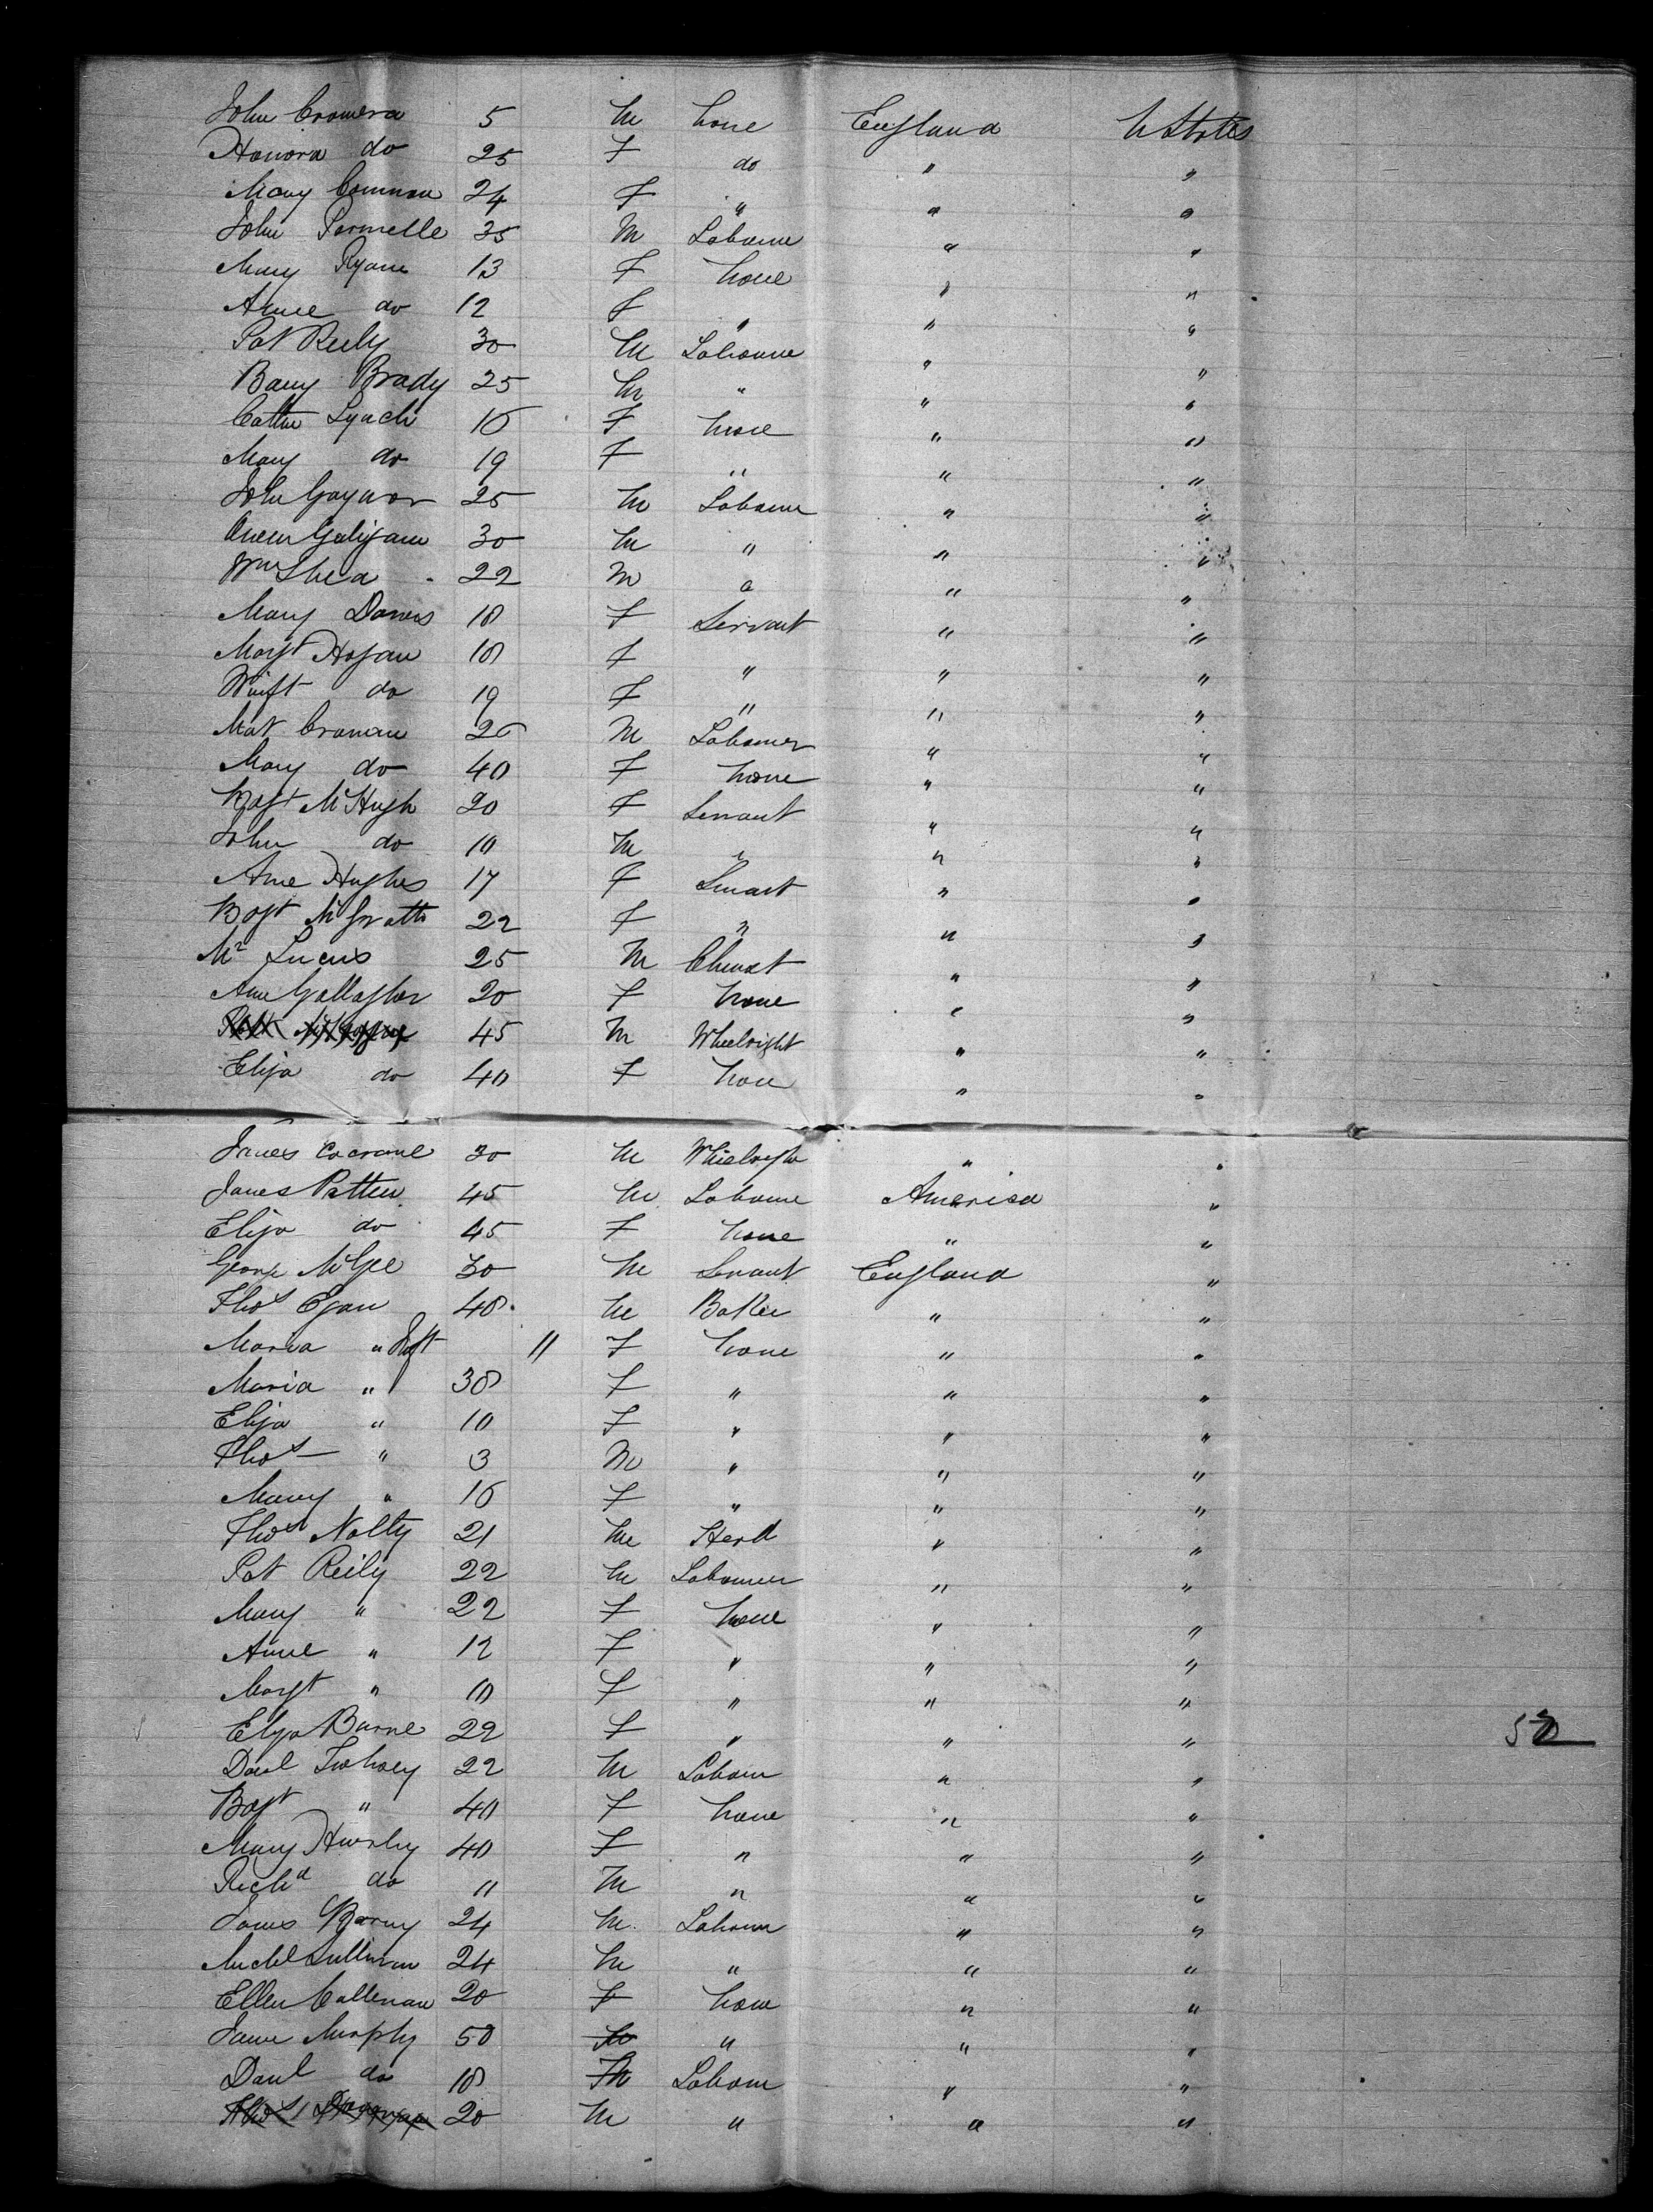 John Cromera 5 M none England U States
Honora do 25 F do " "
Mary Common 24 F " " "
John Parmelle 35 M Labourer " "
Mary Ryan 13 F none " "
Anne do 12 F " " "
Pat Reily 30 M Labourer " "
Barry Brady 25 M " " "
Cathe Lynch 16 F none " "
Mary do 19 F " " "
John Gaynor 25 M Labourer " "
Owen Galigan 30 M " " "
Wm Shea 22 M " " "
Mary Dawes 18 F Servant " "
Margt Hogan 18 F " " "
Winft do 19 F " " "
Mat Cronan 26 M Labourer " "
Mary do 40 F none " "
Bagt McHugh 20 F Servant " "
John do 10 M " " "
Ane Hughes 17 F Servant " "
Bagt McGrath 22 F " " "
Mr Lucus 25 M Chemist " "
Ann Gallagher 20 F none " "
45 M Wheelright " "
Eliza do 40 F none " "
James Cocrane 30 M Wheelright " "
James Patten 45 M Labourer America "
Eliza do 45 F none " "
George McGee 30 M Servant England "
Thos Egan 40 M Baker " "
Maria " Inft 11 F none " "
Maria " 30 F " " "
Eliza " 10 F " " "
Thos " 3 M " " "
Mary " 16 F " " "
Thos Nolty 21 M Herd " "
Pat Reily 22 M Labourer " "
Mary " 22 F none " "
Anne " 12 F " " "
Margt " 10 F " " "
Eliza Burne 22 F " " "
52
Danl Twhoey 22 M Labour " "
Bagt " 40 F none " "
Mary Hursley 40 F " " "
Richd do 11 M " " "
James Barny 24 M Labour " "
Michl Sullivan 24 M " " "
Ellen Callenan 20 F none " "
Jame Murphy 50 " " "
Danl do 18 M Labour " "
Thos Donovan 20 M " " "